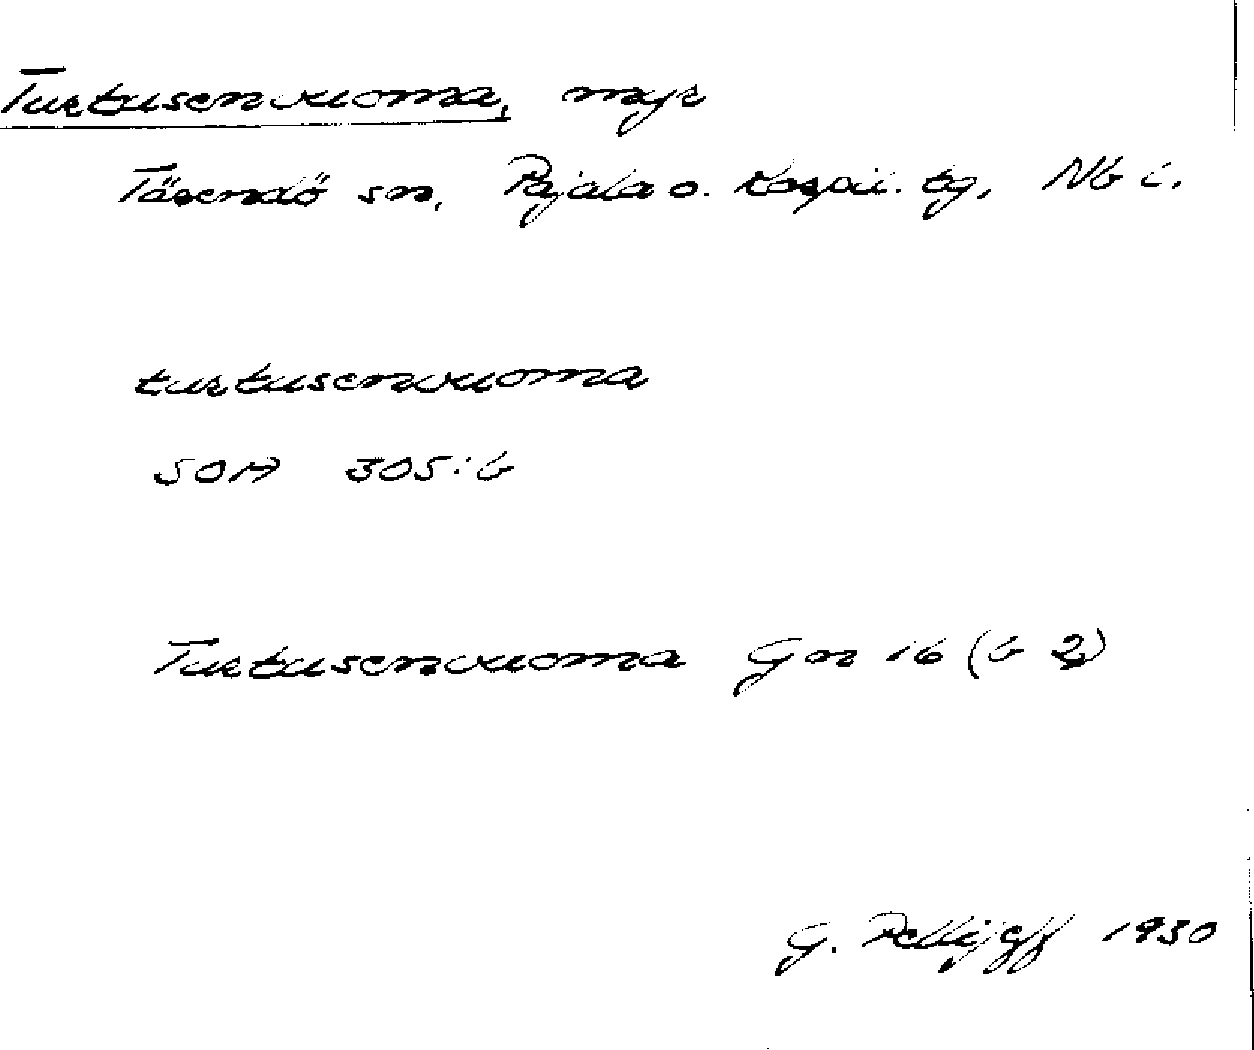 Turtusenvuoma, myr
Tärendö sn, Pajala o. Korpil. tg, Nb l.
turtusenvuoma
SOA 305:6
Turtusenvuoma Gn 16 (b 2)
G. Pellijeff 1930